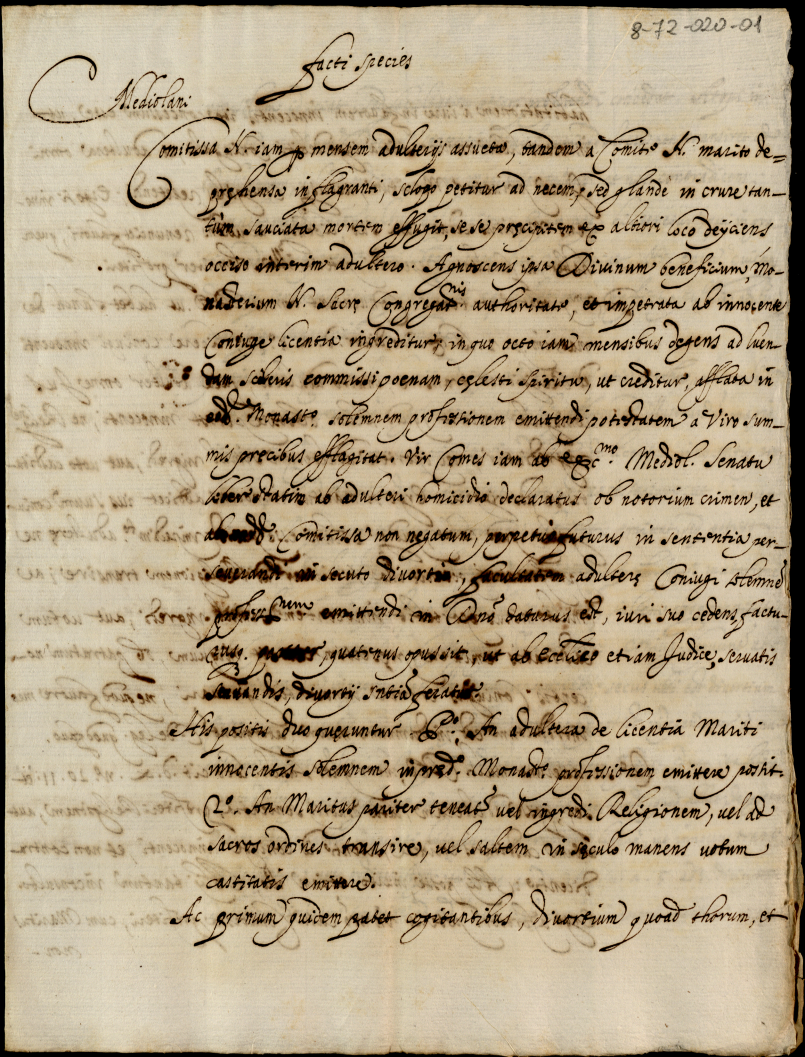 8-72-020-01
facti species
Mediolani
Comitissa N. iam p mensem adulterijs assueta, tandem a Comite N. marito de=
pręhensa in flagranti, sclopo petitur ad necem, sed glande in crure tan-
tum sauciata mortem effugit, se se pręcipitem ex altiori loco deijciens
occiso interim adultero. Agnoscens ipsa Divinum beneficium, Mo-
nasterium N. Sacrę Congregatnis authoritate, et impetrata ab innocente
Coniuge licentia ingreditur, in quo octo iam mensibus degens ad luen-
dam sceleris commissi poenam, cęlesti spiritu, ut creditur, afflata in
eod. Monasto. solemnem professionem emittendi potestatem a Viro sum-
mis precibus efflagitat. Vir Comes iam ab Excmo. Mediol. Senatu
liber statim ab adulteri homicidio declaratus ob notorium crimen, et
ab Comitissa non negatum, perpetuo futurus in sententia per-
severandi in secuto divortio, facultatem adulterę Coniugi solemnē
professnem emittendi in Dno daturus est, iuri suo cedens, factu-
rusq. , quatenus opus sit, ut ab Eccleco etiam Judice, servatis
servandis, divortij sntia feratur.
His positis duo quęruntur Po. An adultera de licentia Mariti
innocentis solemnem in pred. Monasto. professionem emittere possit.
2o. An Maritus pariter teneatr vel ingredi Religionem, vel ad
sacros ordines transire, vel saltem in sęculo manens votum
castitatis emittere.
Ac primum quidem patet cogitantibus, divortium quoad thorum, et